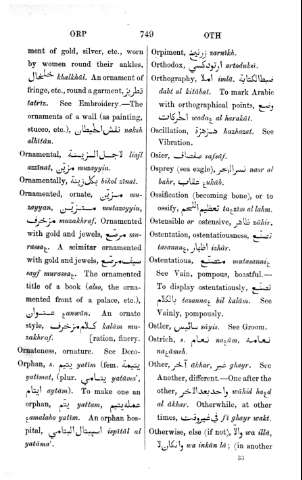 ORP 749 OTH
ment of gold, silver, etc., worn
by women round their ankles,
خلخال khalkhâl. An ornament of
fringe, etc., round a garment, تطريز
tatrîz. See Embroidery.—The
ornaments of a wall (as painting,
stucco, etc.), نقش الحيطان naksh
alhitân.
Ornamental, لاجل الزينة liajl
azzînat, مزين muzayyin.
Ornamentally, بكل زينة bikol zînat.
Ornamented, ornate, مزين mu-
zayyan, متزين mutazayyin,
مزخرف muzakhraf. Ornamented
with gold and jewels, مرصع
A scimitar ornamented
with gold and jewels, سيف مرصع
The ornamented
title of a book (also, the orna-
mented front of a palace, etc.),
عنوان An ornate
style, كلام مزخرف kalâm mu-
zakhraf. [ration, finery.
Ornateness, ornature. See Deco-
Orphan, s. يتيم yatîm (fem. يتيمة
yatîmat, (plur. يتامى yatâma',
ايتام aytâm). To make one an
orphan, يتم yattam, عمله يتيم
amalaho yatîm. An orphan hos-
pital, اسبيتال اليتامى ispitâl al
yatâma'.
Orpiment, زرنيخ zarnîkh.
Orthodox, ارتودكسي
Orthography, املا imlâ, ضبط الكتابة
dabt al kitâbat. To mark Arabic
with orthographical points, وضع
الحركات al harakât.
Oscillation, هزهزة hazhazat. See
Vibration.
Osier, صفصاف safsâf.
Osprey (sea eagle), نسر البحر nasr al
bahr, عقاب
Ossification (becoming bone), or to
ossify, تعظيم اللحم al lahm.
Ostensible or ostensive, ظاهر
Ostentation, ostentatiousness, تصنع
اظهار
Ostentatious, متصنع
See Vain, pompous, boastful.—
To display ostentatiously, تصنع
بالكلام bil kalâm. See
Vainly, pompously.
Ostler, سايس sâyis. See Groom.
Ostrich, s. نعام نعامة
Other, آخر âkhar, غير ghayr. See
Another, different.—One after the
other, واحد بعد الاخر wâhid
al âkhar. Otherwhile, at other
times, في غير وقت fî ghayr wakt.
Otherwise, else (if not), والا wa illa,
وان كان لا wa inkân lâ; (in another